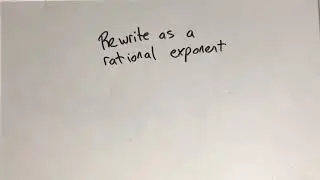 Rewrite as a
rational exponent